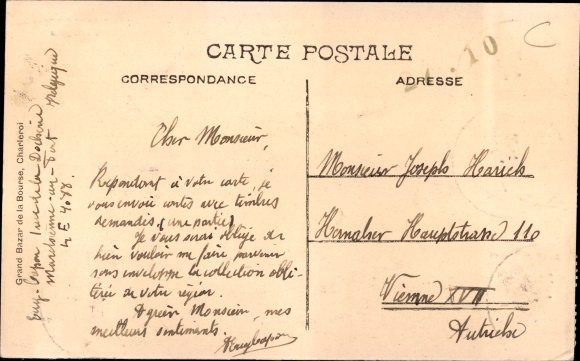 CARTE POSTALE
CORRESPONDANCE
ADRESSE
Cher Monsieur,
Répondant à votre carte, je
vous envoie cartes avec timbres
demandés (une partie).
Je vous serai obligé de
bien vouloir me faire parvenir
sous enveloppe la collection obli-
térée de votre région.
Agréer Monsieur, mes
meilleurs sentiments.
Monsieur Joseph
Hernalser Hauptstrasse 110
Vienne XVII
Autriche
Grand Bazar de la Bourse, Charleroi
rue de la
Marchienne-au-Pont Belgique
10
C